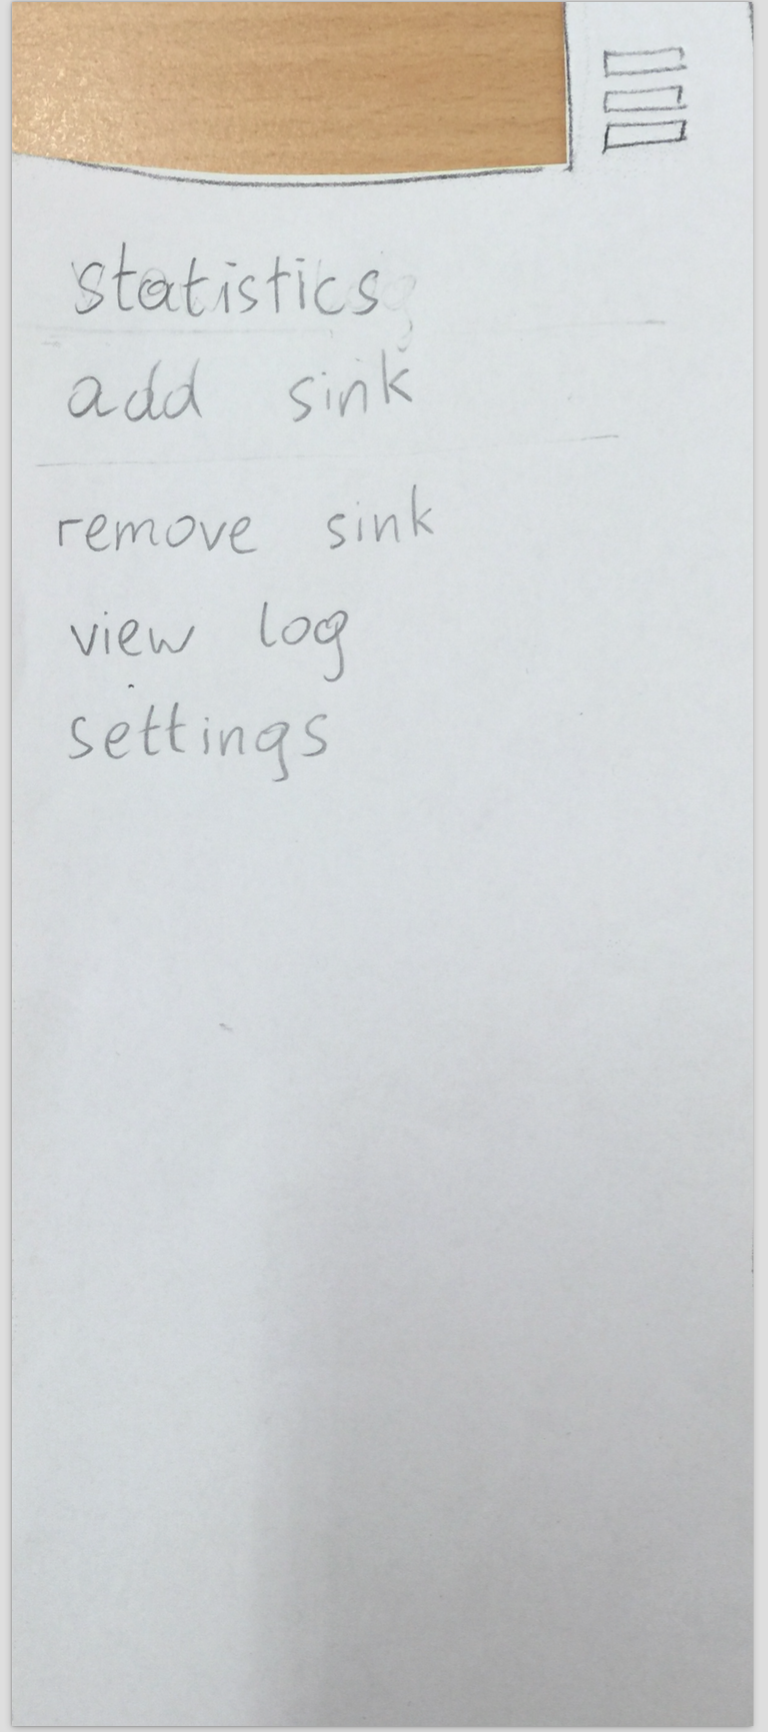 statistics
add sink
remove sink
view log
settings